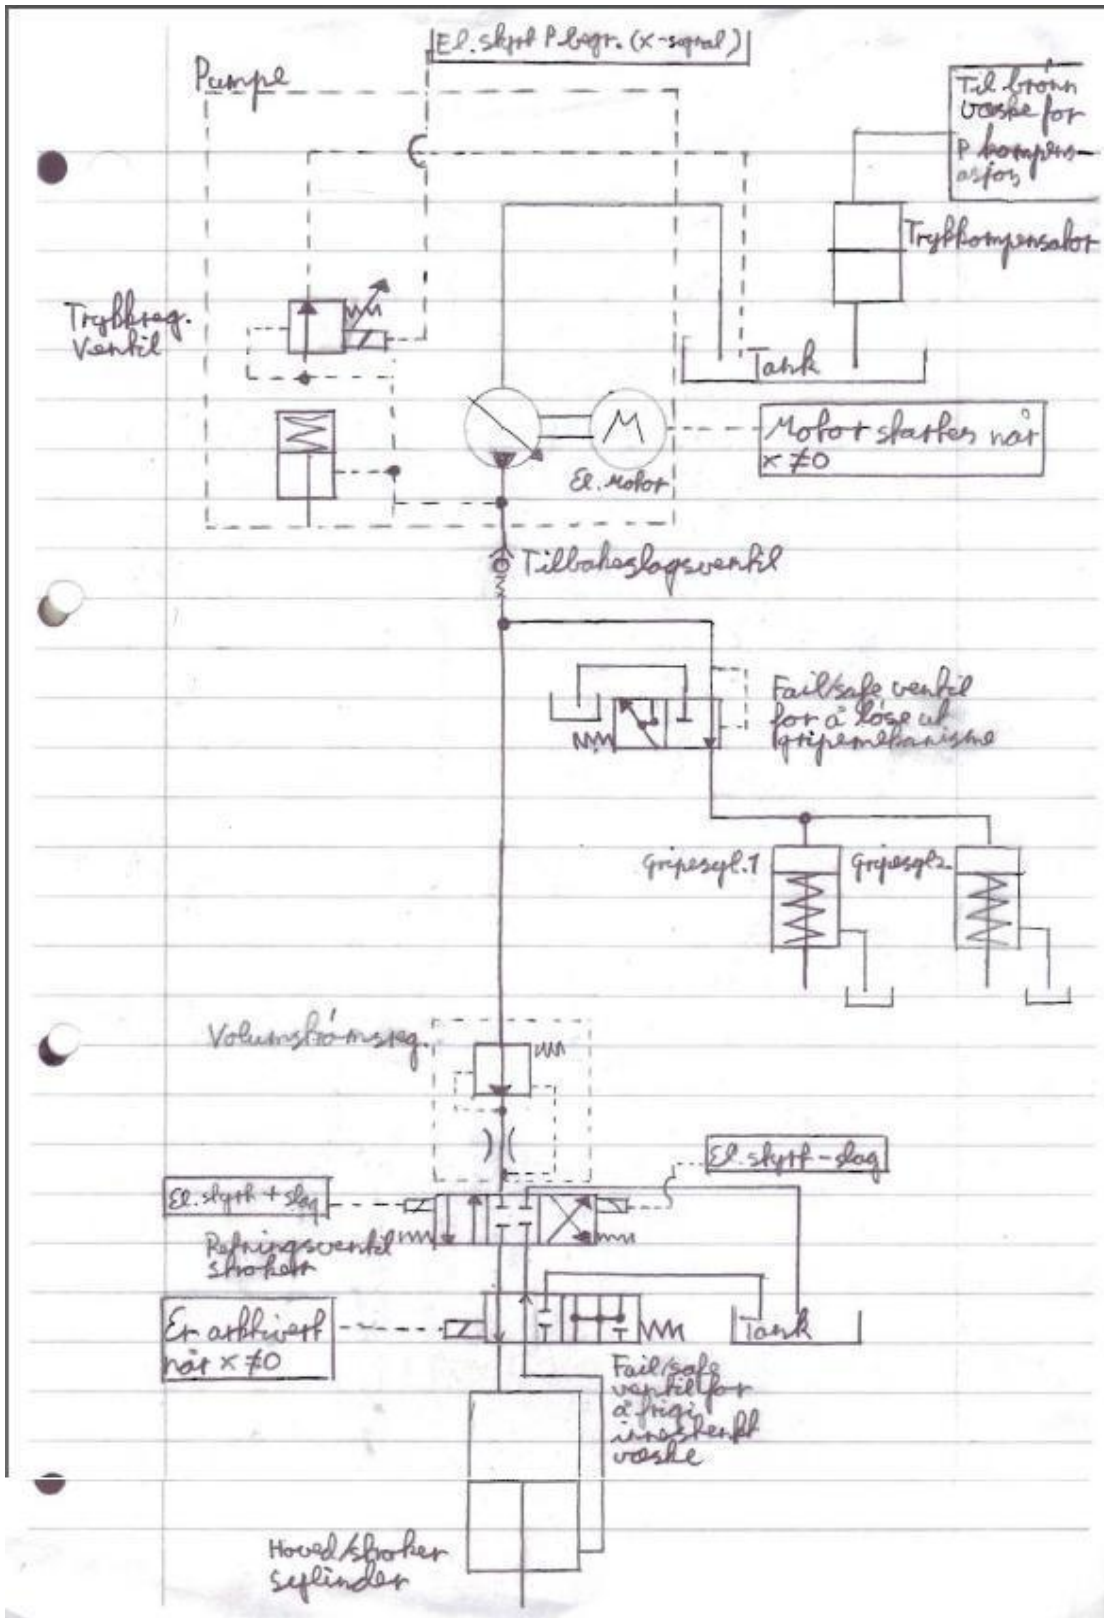 El. styrt P begr. (x-signal)
Pumpe
Til brønn
væske for
P kompen-
asjon
Trykkompensator
Trykkreg.
Ventil
Tank
M
Motor starter når
x ≠ 0
El. Motor
Tilbakeslagsventil
Fail/safe ventil
for å løse ut
gripemekanisme
Gripesyl. 1
Gripesyl 2
Volumstrømsreg.
El. styrt - slag
El. styrt + slag
Retningsventil
stroker
Er aktivert
når x ≠ 0
Tank
Fail/safe
ventil for
å frigi
innestengt
væske
Hoved/stroker
sylinder